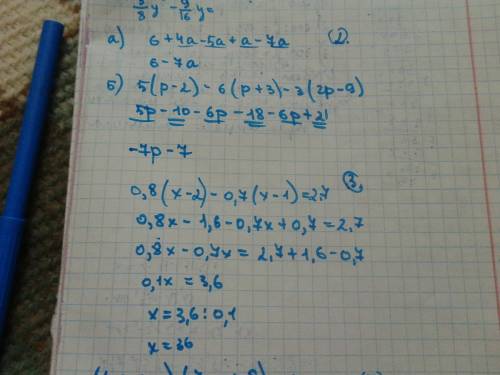 5/8 y - 9/16 y =
а) 6 + 4a - 5a + a - 7a (2.
6 - 7a
б) 5(p-2) - 6(p+3) - 3(2p-9)
5p - 10 - 6p - 18 - 6p + 21
-7p - 7
3.
0,8(x-2) - 0,7(x-1) = 2.7
0,8x - 1,6 - 0,7x + 0,7 = 2.7
0,8x - 0,7x = 2,7 + 1,6 - 0,7
0,1x = 3,6
x = 3,6 : 0,1
x = 36